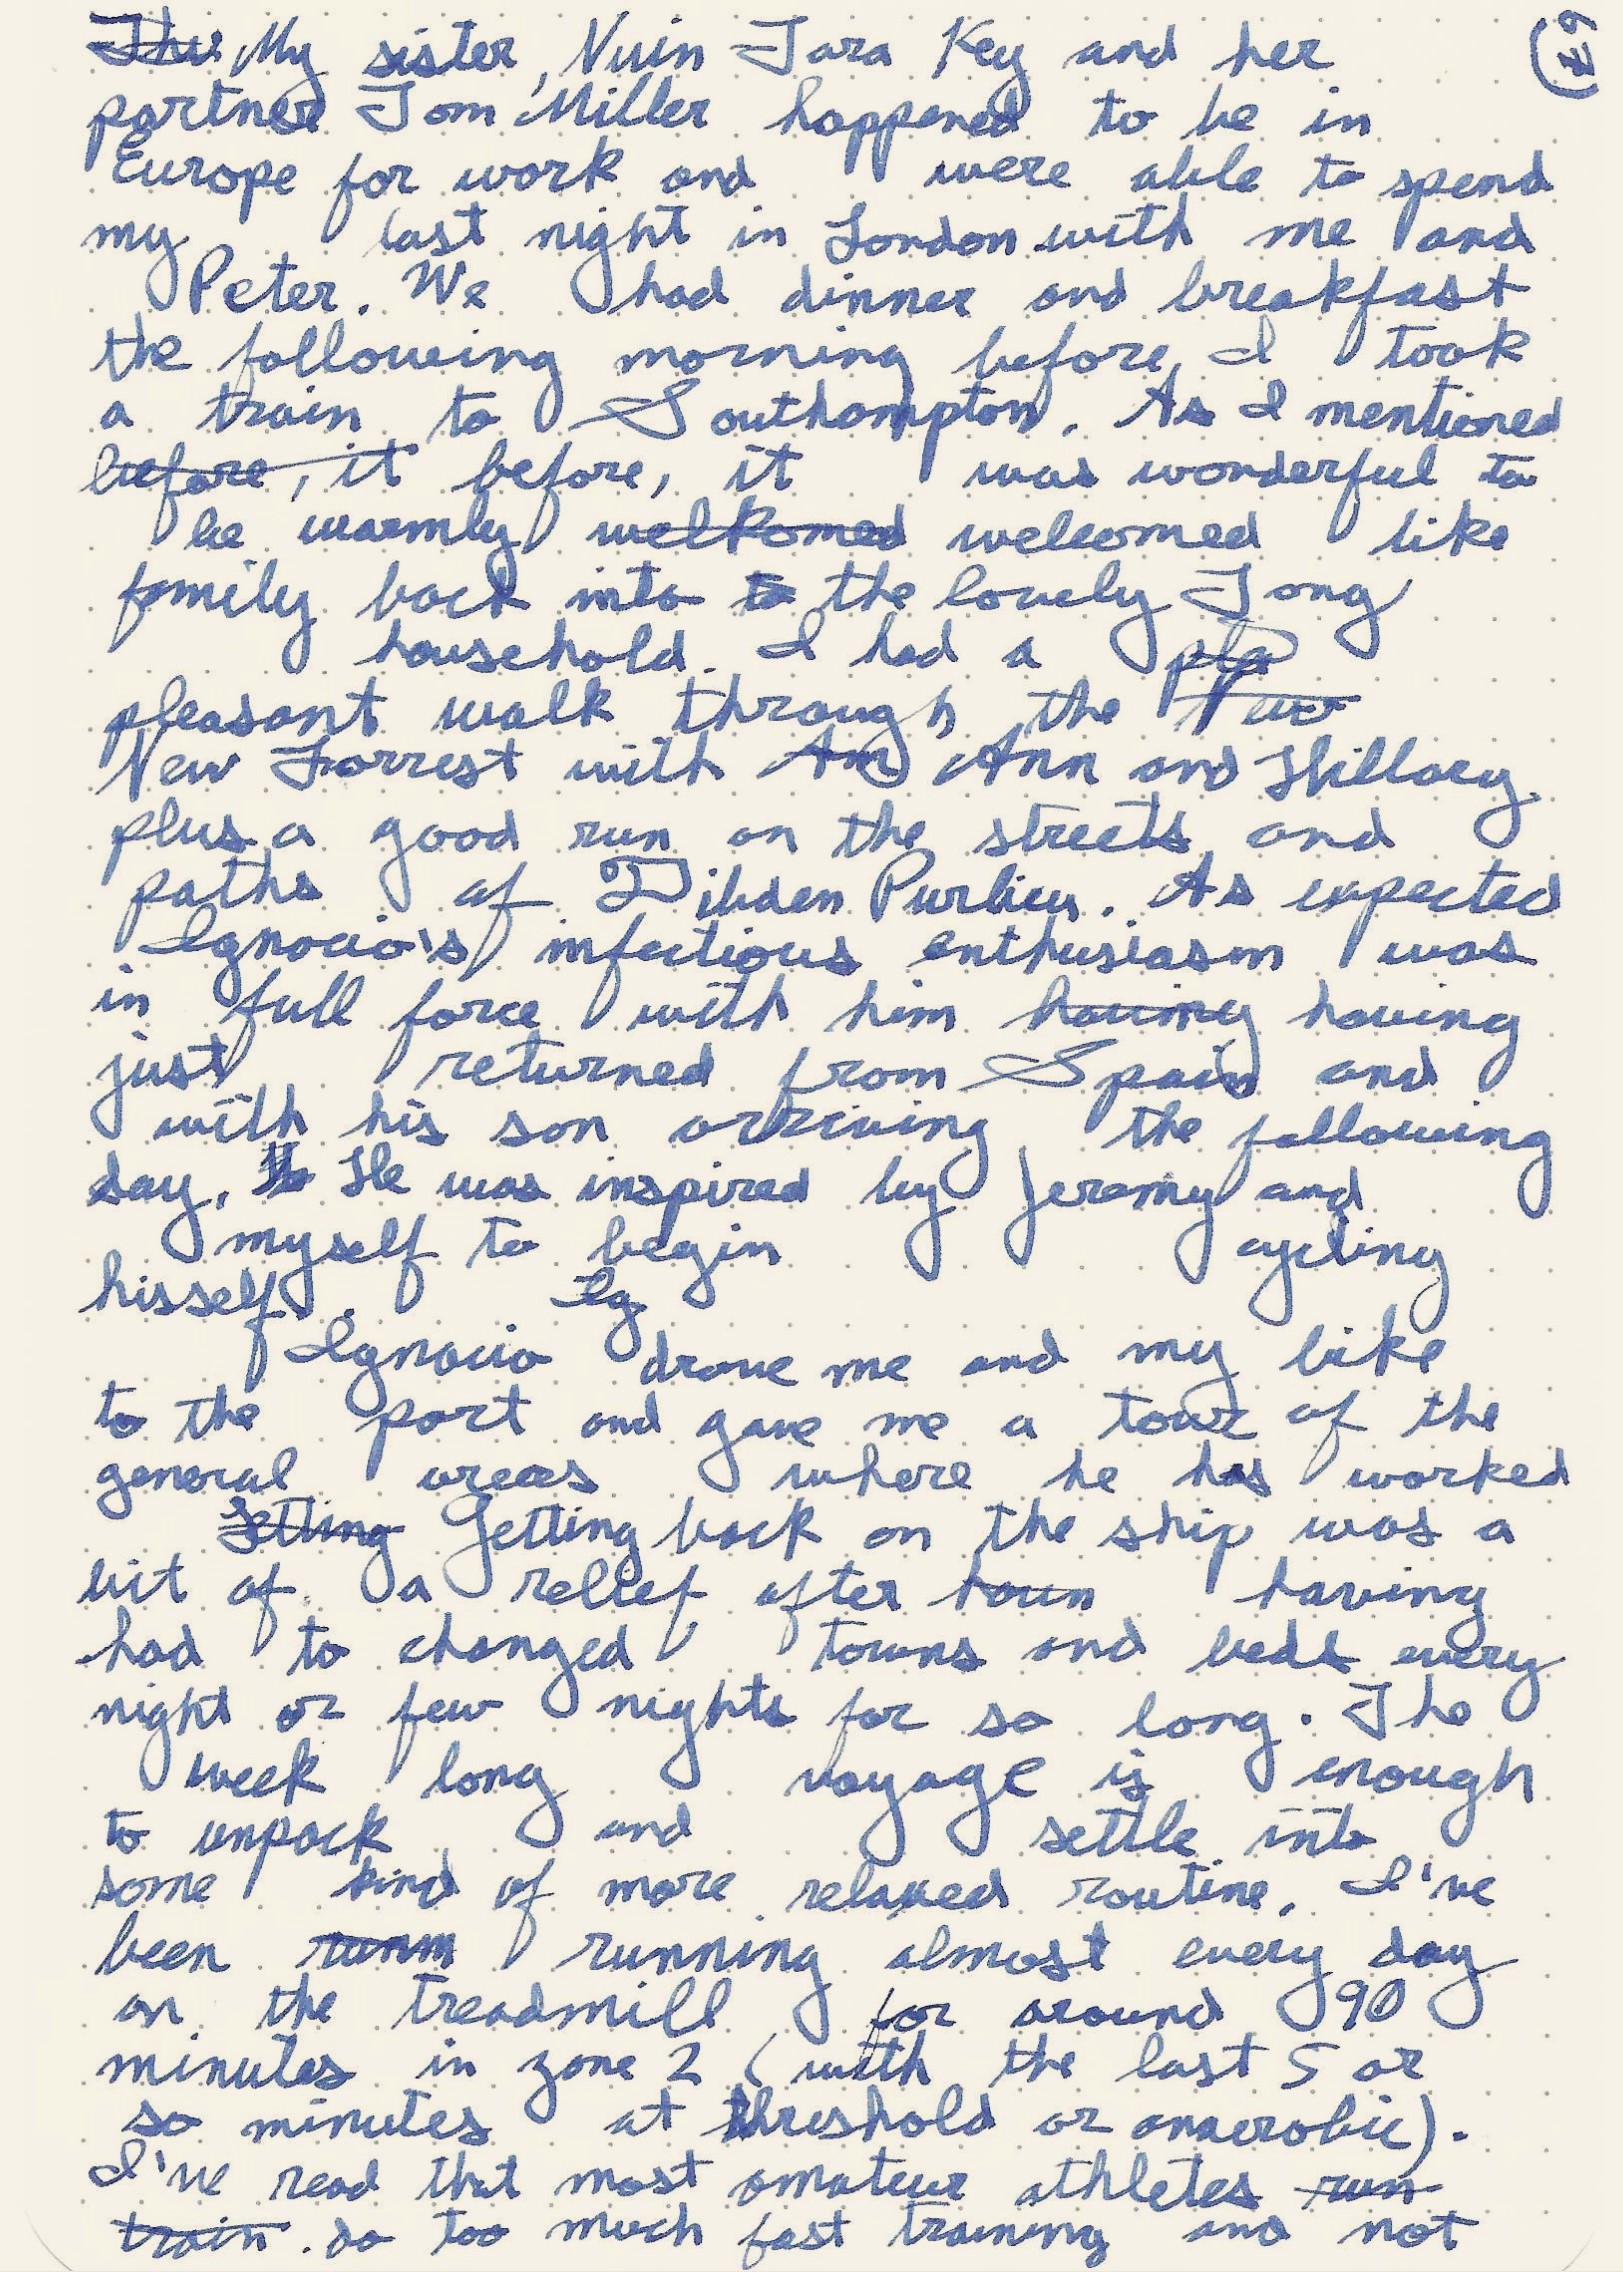 My sister, Nuin Tara Key and her
partner Tom Miller happened to be in
Europe for work and were able to spend
my last night in London with me and
Peter. We had dinner and breakfast
the following morning before I took
a train to Southampton. As I mentioned
before, it before, it was wonderful to
be warmly welkomed welcomed like
family back into to the lovely Tong
household. I had a pla
pleasant walk through the New
New Forrest with An Ann and Hillary
plus a good run on the streets and
paths of Dibden Purlieu. As expected
Ignacio's infectious enthusiasm was
in full force with him having having
just returned from Spain and
with his son arriving the following
day. He He was inspired by Jeremy and
myself to begin cycling
hisself.
Ig
Ignacio drove me and my bike
to the port and gave me a tour of the
general areas where he has worked
Getting Getting back on the ship was a
bit of a relief after havin having
had to changed towns and beds every
night or few nights for so long. The
week long voyage is enough
to unpack and settle into
some kind of more relaxed routine. I've
been runnin running almost every day
on the treadmill for around 90
minutes in zone 2 (with the last 5 or
so minutes at threshold or anaerobic).
I've read that most amateur athletes run
train do too much fast training and not